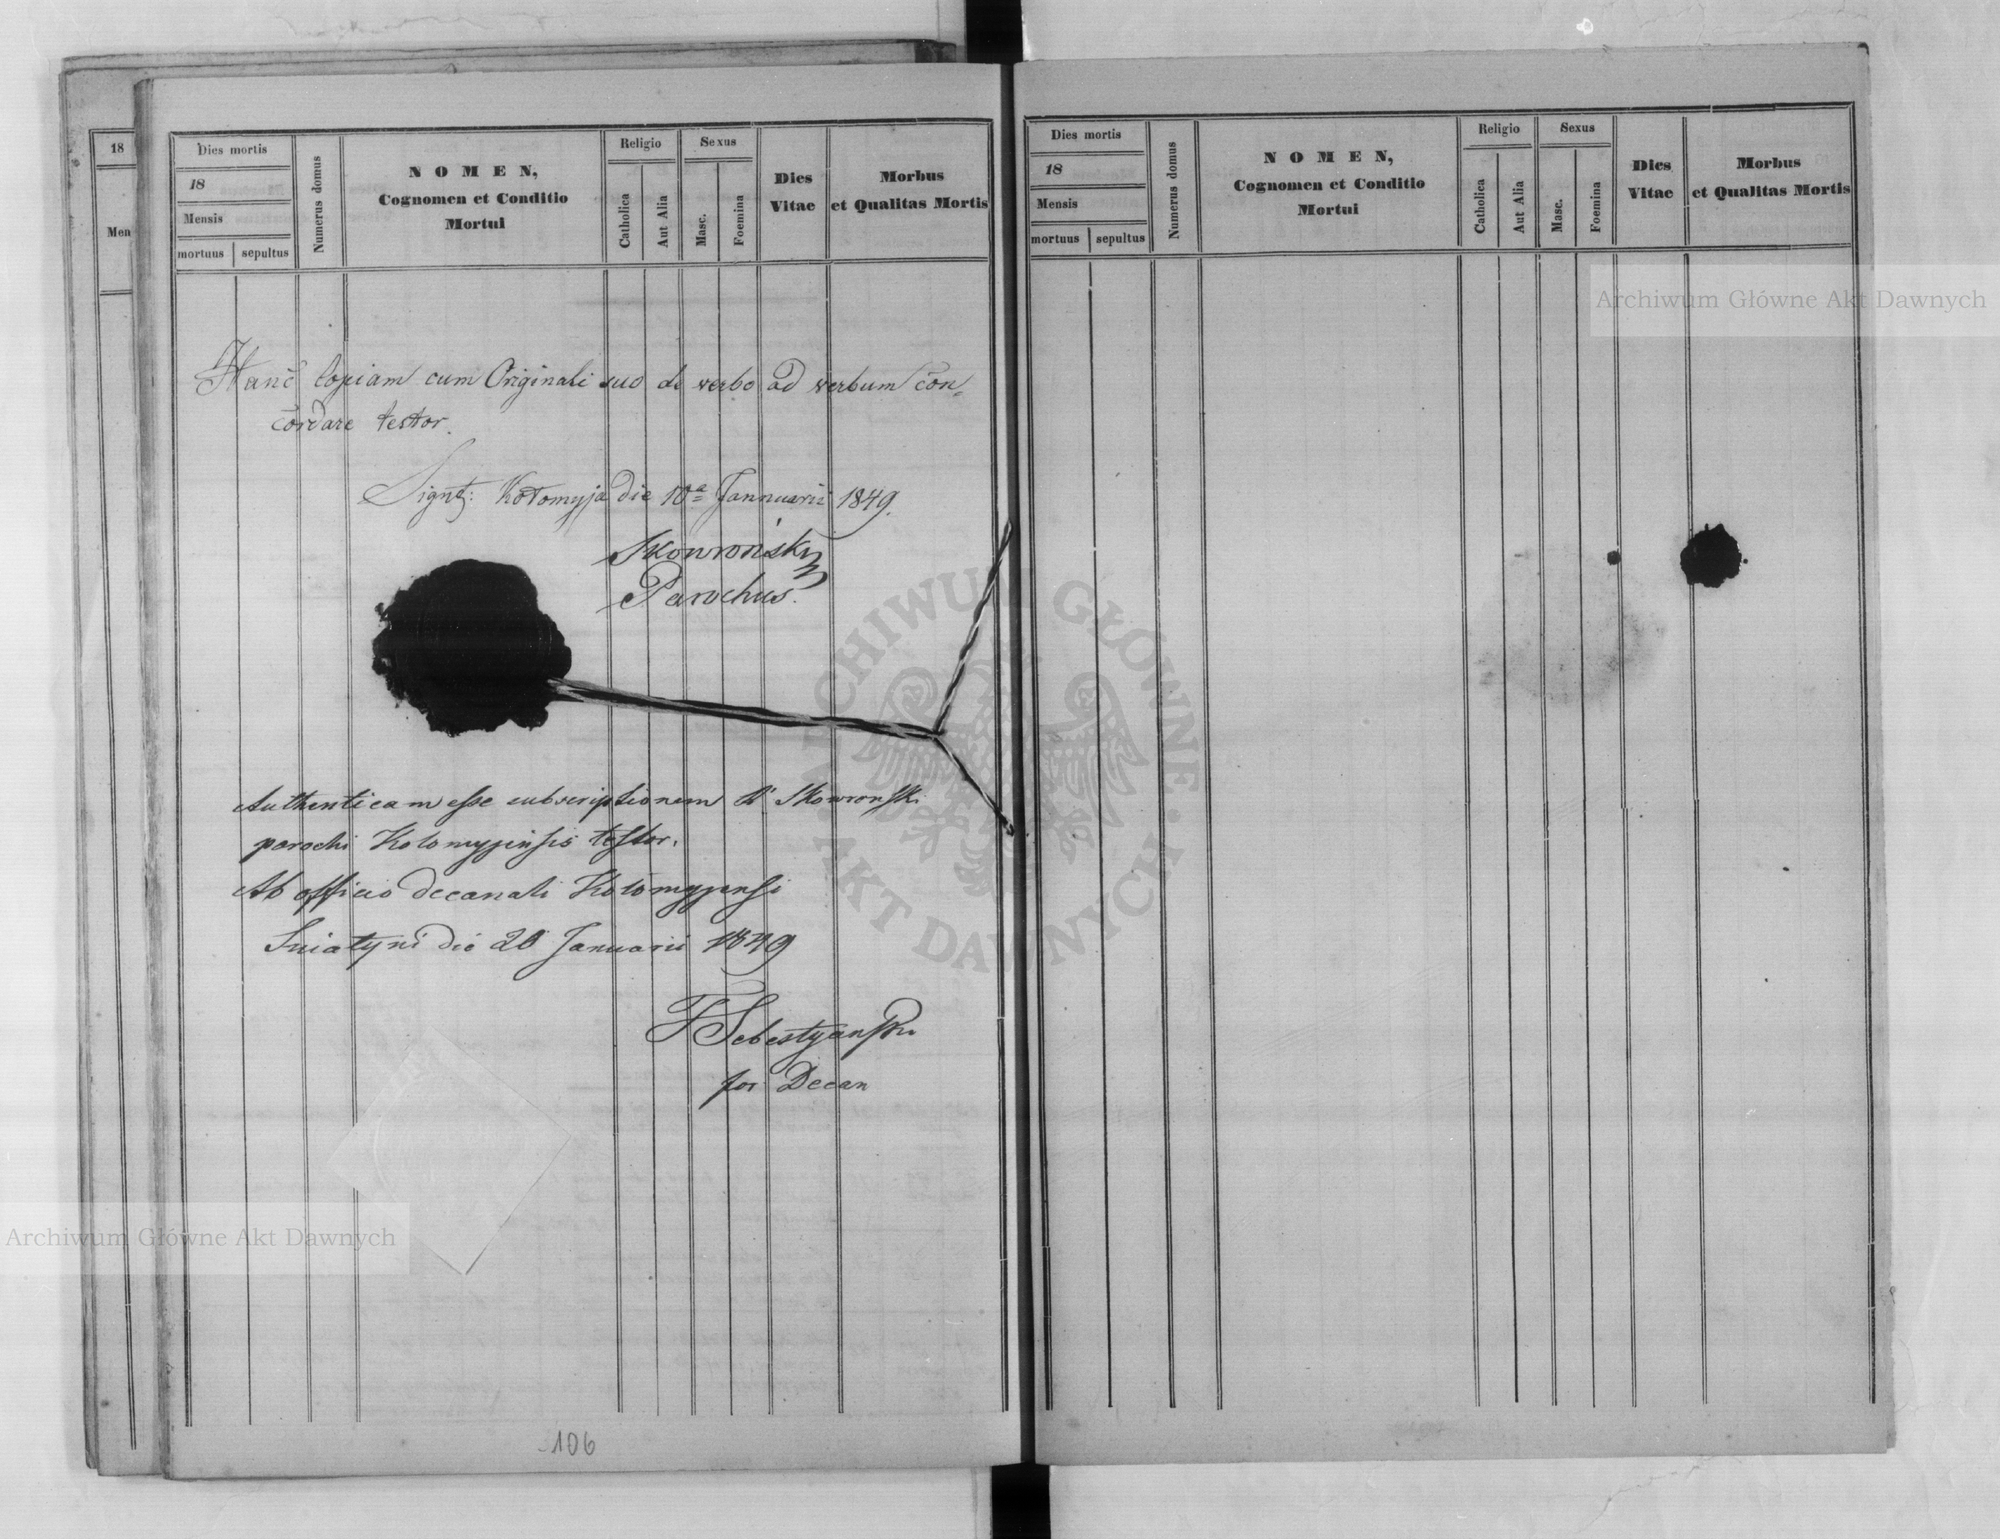 18
Men
Dies mortis
18
Mensis
mortuus sepultus
Numerus domus
NOMEN,
Cognomen et Conditio
Mortui
Religio
Catholica
Aut Alia
Sexus
Masc.
Foemina
Dies
Vitae
Morbus
et Qualitas Mortis
Hanc Copiam cum Originali suo de verbo ad verbum con„
cordare testor.
Signt: Kołomyja die 10a Jannuarii 1849.
Skowroński
Parochus.
Authenticam esse subscriptionem Skowronski
parochi Kolomyjensis testor.
Ab officio decanali Kołomyjensi
Sniatyni die 20 Januarii 1849
F Sebestyanski
for Decan
106
Dies mortis
18
Mensis
mortuus sepultus
Numerus domus
NOMEN,
Cognomen et Conditio
Mortui
Religio
Catholica
Aut Alia
Sexus
Masc.
Foemina
Dies
Vitae
Morbus
et Qualitas Mortis
Archiwum Główne Akt Dawnych
ARCHIWUM GŁÓWNE
AKT DAWNYCH
Archiwum Główne Akt Dawnych